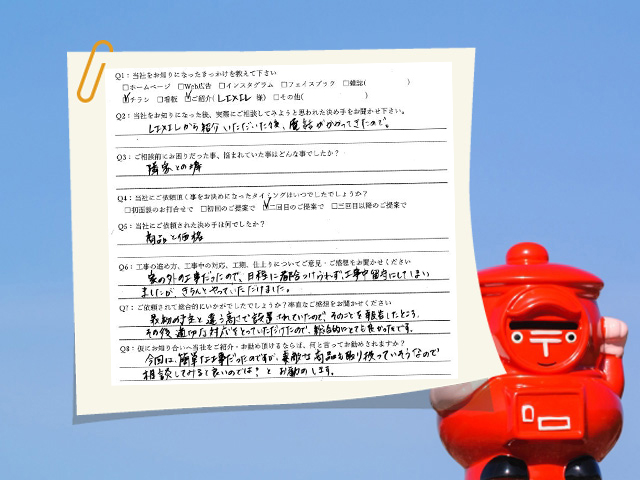 Q1：当社をお知りになったきっかけを教えて下さい
□ホームページ □Web広告 □インスタグラム □フェイスブック □雑誌( )
☑チラシ □看板 ☑ご紹介(LIXIL 様) □その他( )
Q2：当社をお知りになった後、実際にご相談してみようと思われた決め手をお聞かせ下さい。
LIXILから紹介いただいた後、電話がかかってきたので。
Q3：ご相談前にお困りだった事、悩まれていた事はどんな事でしたか？
隣家との塀
Q4：当社にご依頼頂く事をお決めになったタイミングはいつでしたでしょうか？
□初面談のお打合せで □初回のご提案で ☑二回目のご提案で □三回目以降のご提案で
Q5：当社にご依頼された決め手は何でしたか？
商品と価格
Q6：工事の進め方、工事中の対応、工期、仕上りについてご意見・ご感想をお聞かせください
家の外の工事だったので、日程に都合つけられず、工事中留守にしてしまい
ましたが、きちんとやっていただけました。
Q7：ご依頼されて総合的にいかがでしたでしょうか？率直なご感想をお聞かせください
最初の予定と違う高さで設置されていたので、そのことを報告したところ、
その後、適切な対応をとっていただけたので、総合的にとても良かったです。
Q8：仮にお知り合いへ当社をご紹介・お勧め頂けるならば、何と言ってお勧めされますか？
今回は、簡単な工事だったのですが、素敵な商品も取り扱っていそうなので
相談してみると良いのでは？とお勧めします。